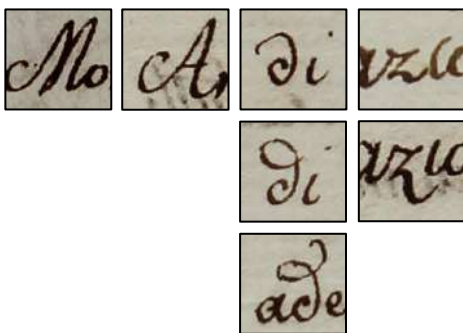 Mo A di azio
di azio
ade